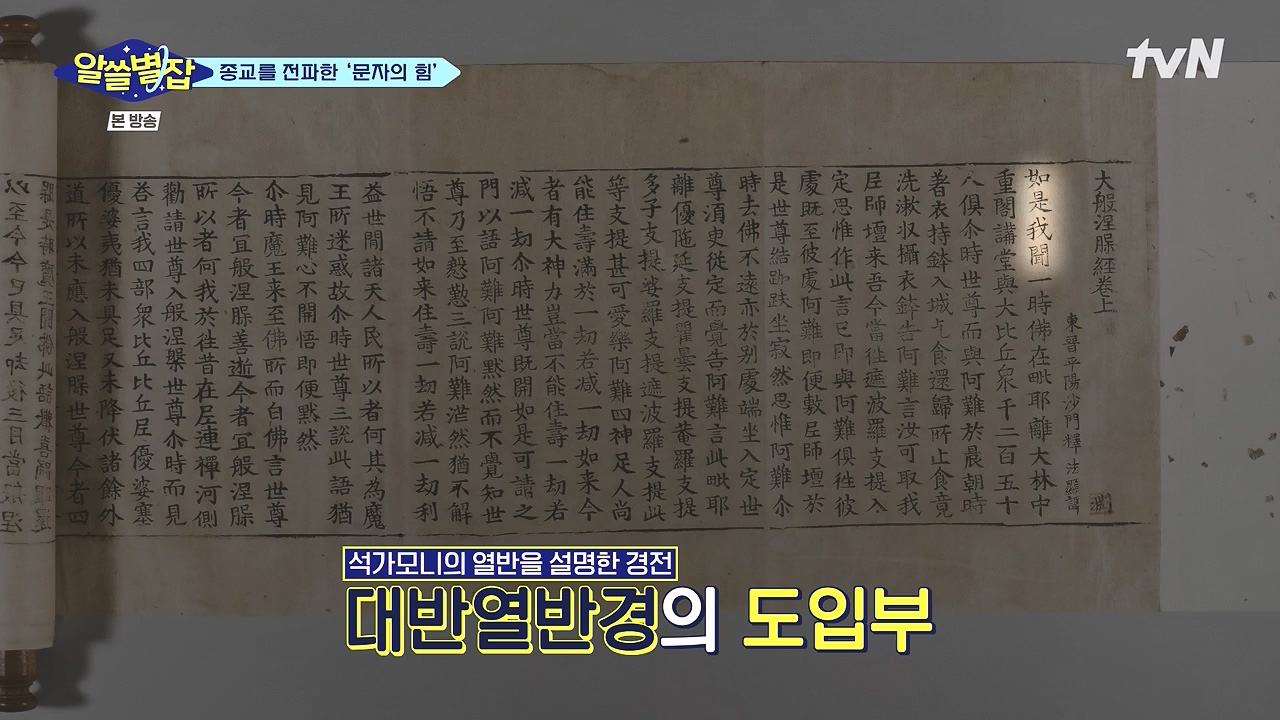 알쓸별잡
종교를 전파한 '문자의 힘'
tvN
본 방송
大般涅槃経卷上
東晉平陽沙門釋法顯譯
如是我聞一時佛在毗耶離大林中
重閣講堂與大比丘衆千二百五十
人俱尒時世尊而與阿難於晨朝時
著衣持鉢入城乞食還歸所止食竟
洗漱収攝衣鉢告阿難言汝可取我
尼師壇来吾今當往遮波羅支提入
定思惟作此言已即與阿難俱往彼
處既至彼處阿難即便敷尼師壇於
是世尊結跏趺坐寂然思惟阿難尒
時去佛不遠亦於别處端坐入定世
尊湏臾從定而覺告阿難言此毗耶
離優陁延支提瞿曇支提菴羅支提
多子支提娑羅支提遮波羅支提此
等支提甚可愛樂阿難四神足人尚
能住壽滿於一劫若减一劫如来今
者有大神力豈當不能住壽一劫若
减一劫尒時世尊既開如是可請之
門以語阿難阿難黙然而不覺知世
尊乃至慇懃三說阿難茫然猶不解
悟不請如来住壽一劫若减一劫利
益世間諸天人民所以者何其為魔
王所迷惑故尒時世尊三說此語猶
見阿難心不開悟即便黙然
尒時魔王来至佛所而白佛言世尊
今者宜般涅槃善逝今者宜般涅槃
所以者何我於往昔在尼連禪河側
勸請世尊入般涅槃世尊尒時而見
荅言我四部衆比丘比丘尼優婆塞
優婆夷猶未具足又未降伏諸餘外
道所以未應入般涅槃世尊今者四
석가모니의 열반을 설명한 경전
대반열반경의 도입부